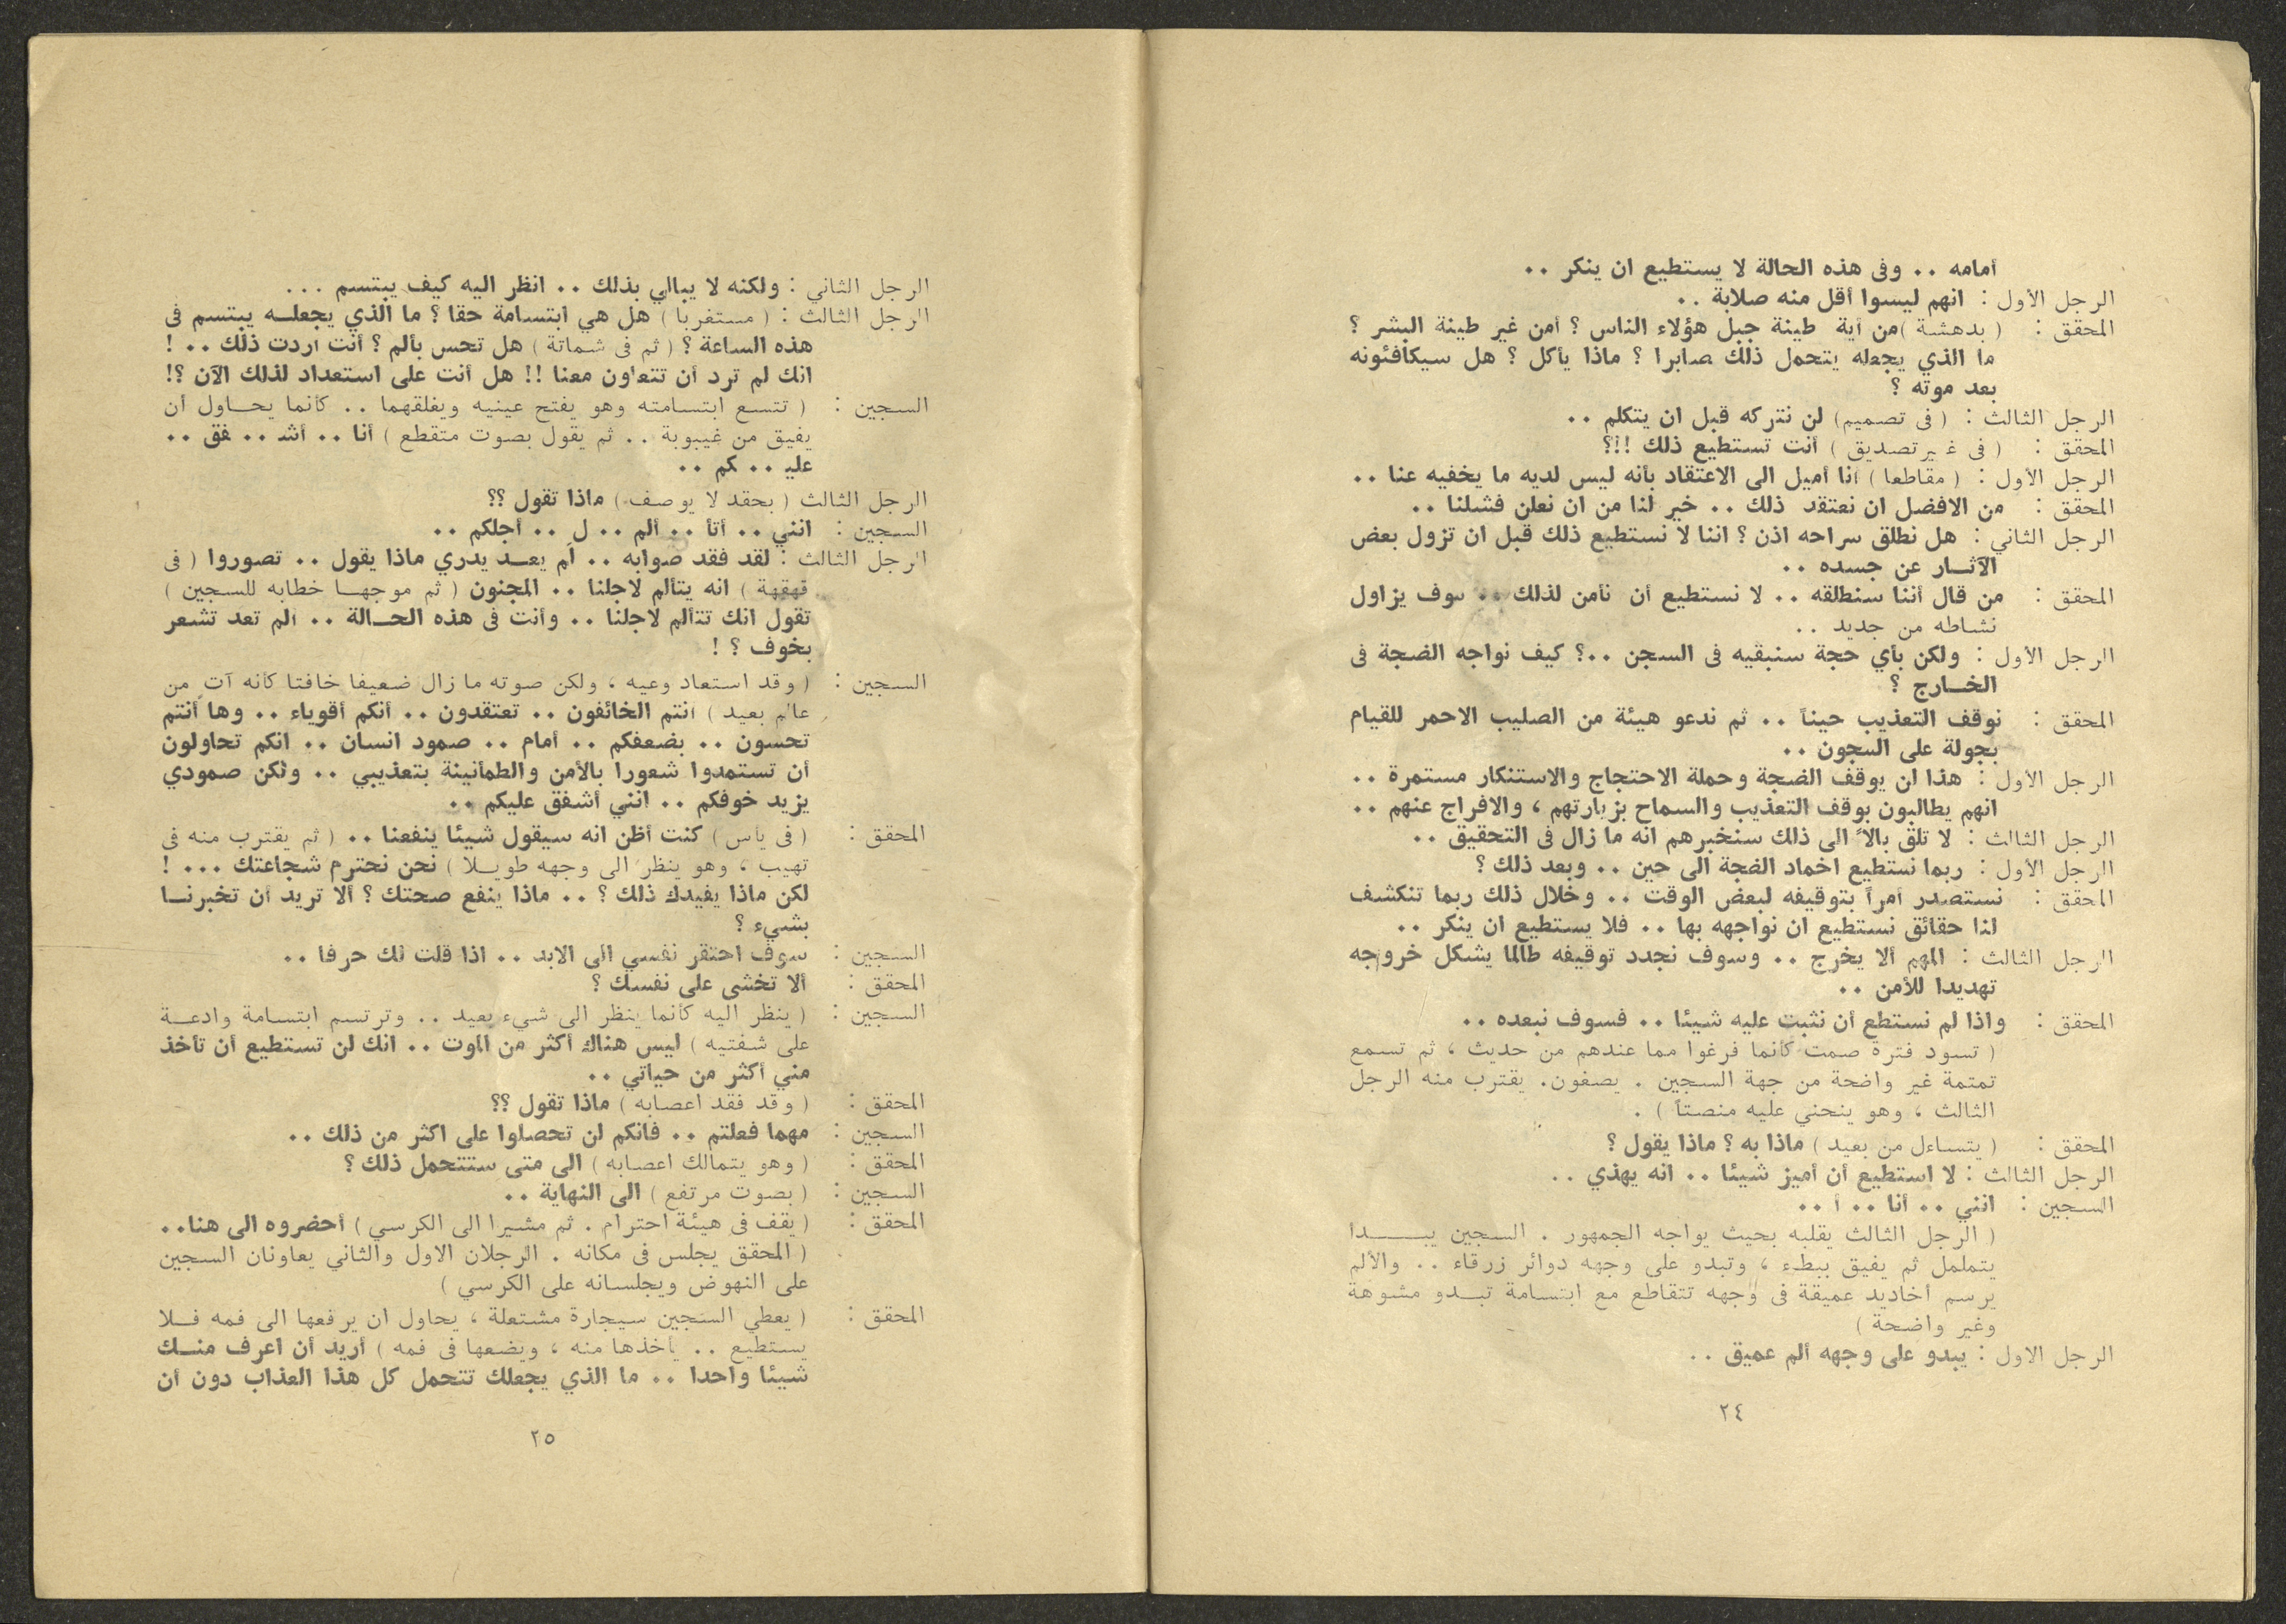 أمامه ٠٠ وفى هذه الحالة لا يستطيع ان ينكر ٠٠
الرجل الأول : انهم ليسوا أقل منه صلابة ٠٠
المحقق : ( بدهشة ) من أية طينة جبل هؤلاء الناس ؟ أمن غير طينة البشر ؟
ما الذي يجعله يتحمل ذلك صابرا ؟ ماذا يأكل ؟ هل سيكافئونه
بعد موته ؟
الرجل الثالث : ( فى تصميم ) لن نتركه قبل ان يتكلم ٠٠
المحقق : ( فى غير تصديق ) أنت تستطيع ذلك !!؟
الرجل الأول : ( مقاطعا ) أنا أميل الى الاعتقاد بأنه ليس لديه ما يخفيه عنا ٠٠
المحقق : من الافضل ان نعتقد ذلك ٠٠ خير لنا من ان نعلن فشلنا ٠٠
الرجل الثاني : هل نطلق سراحه اذن ؟ اننا لا نستطيع ذلك قبل ان تزول بعض
الآثار عن جسده ٠٠
المحقق : من قال أننا سنطلقه ٠٠ لا نستطيع أن نأمن لذلك ٠٠ سوف يزاول
نشاطه من جديد ٠٠
الرجل الأول : ولكن بأي حجة سنبقيه فى السجن ٠٠؟ كيف نواجه الضجة فى
الخارج ؟
المحقق : نوقف التعذيب حيناً ٠٠ ثم ندعو هيئة من الصليب الاحمر للقيام
بجولة على السجون ٠٠
الرجل الأول : هذا لن يوقف الضجة وحملة الاحتجاج والاستنكار مستمرة ٠٠
انهم يطالبون بوقف التعذيب والسماح بزيارتهم ، والافراج عنهم ٠٠
الرجل الثالث : لا تلق بالاً الى ذلك سنخبرهم انه ما زال فى التحقيق ٠٠
الرجل الأول : ربما نستطيع اخماد الضجة الى حين ٠٠ وبعد ذلك ؟
المحقق : نستصدر أمراً بتوقيفه لبعض الوقت ٠٠ وخلال ذلك ربما تنكشف
لنا حقائق نستطيع ان نواجهه بها ٠٠ فلا يستطيع ان ينكر ٠٠
الرجل الثالث : المهم ألا يخرج ٠٠ وسوف نجدد توقيفه طالما يشكل خروجه
تهديدا للأمن ٠٠
المحقق : واذا لم نستطع أن نثبت عليه شيئا ٠٠ فسوف نبعده ٠٠
( تسود فترة صمت كأنما فرغوا مما عندهم من حديث ، ثم تسمع
تمتمة غير واضحة من جهة السجين . يصغون. يقترب منه الرجل
الثالث ، وهو ينحني عليه منصتاً ) .
المحقق : ( يتساءل من بعيد ) ماذا به ؟ ماذا يقول ؟
الرجل الثالث : لا استطيع أن أميز شيئا ٠٠ انه يهذي ٠٠
السجين : انني ٠٠ أنا ٠٠ أ ٠٠
( الرجل الثالث يقلبه بحيث يواجه الجمهور . السجين يبدا
يتململ ثم يفيق ببطء ، وتبدو على وجهه دوائر زرقاء ٠٠ والألم
يرسم أخاديد عميقة فى وجهه تتقاطع مع ابتسامة تبدو مشوهة
وغير واضحة )
الرجل الاول : يبدو على وجهه ألم عميق ٠٠
٢٤
الرجل الثاني : ولكنه لا يبالي بذلك ٠٠ انظر اليه كيف يبتسم ٠٠٠
الرجل الثالث : ( مستغربا ) هل هي ابتسامة حقا ؟ ما الذي يجعله يبتسم فى
هذه الساعة ؟ ( ثم فى شماتة ) هل تحس بألم ؟ أنت أردت ذلك ٠٠ !
انك لم ترد أن تتعاون معنا !! هل أنت على استعداد لذلك الآن ؟!
السجين : ( تتسع ابتسامته وهو يفتح عينيه ويغلقهما ٠٠ كأنما يحاول أن
يفيق من غيبوبة ٠٠ ثم يقول بصوت متقطع ) أنا ٠٠ أشـ ٠٠ فق ٠٠
عليـ ٠٠ كم ٠٠
الرجل الثالث ( بحقد لا يوصف ) ماذا تقول ؟؟
السجين : انني ٠٠ أتأ ٠٠ ألم ٠٠ ل ٠٠ أجلكم ٠٠
الرجل الثالث : لقد فقد صوابه ٠٠ لم يعد يدري ماذا يقول ٠٠ تصوروا ( فى
قهقهة ) انه يتألم لاجلنا ٠٠ المجنون ( ثم موجها خطابه للسجين )
تقول انك تتألم لاجلنا ٠٠ وأنت فى هذه الحالة ٠٠ ألم تعد تشعر
بخوف ؟ !
السجين : ( وقد استعاد وعيه ، ولكن صوته ما زال ضعيفا خافتا كأنه آت من
عالم بعيد ) أنتم الخائفون ٠٠ تعتقدون ٠٠ أنكم أقوياء ٠٠ وها أنتم
تحسون ٠٠ بضعفكم ٠٠ أمام ٠٠ صمود انسان ٠٠ انكم تحاولون
أن تستمدوا شعورا بالأمن والطمأنينة بتعذيبي ٠٠ ولكن صمودي
يزيد خوفكم ٠٠ انني أشفق عليكم ٠٠
المحقق : ( فى يأس ) كنت أظن انه سيقول شيئا ينفعنا ٠٠ ( ثم يقترب منه فى
تهيب ، وهو ينظر الى وجهه طويلا ) نحن نحترم شجاعتك ٠٠٠ !
لكن ماذا يفيدك ذلك ؟ ٠٠ ماذا ينفع صحتك ؟ ألا تريد أن تخبرنا
بشيء ؟
السجين : سوف احتقر نفسي الى الابد ٠٠ اذا قلت لك حرفا ٠٠
المحقق : ألا تخشى على نفسك ؟
السجين : ( ينظر اليه كأنما ينظر الى شيء بعيد ٠٠ وترتسم ابتسامة وادعة
على شفتيه ) ليس هناك أكثر من الموت ٠٠ انك لن تستطيع أن تأخذ
مني أكثر من حياتي ٠٠
المحقق : ( وقد فقد اعصابه ) ماذا تقول ؟؟
السجين : مهما فعلتم ٠٠ فانكم لن تحصلوا على اكثر من ذلك ٠٠
المحقق : ( وهو يتمالك اعصابه ) الى متى ستتحمل ذلك ؟
السجين : ( بصوت مرتفع ) الى النهاية ٠٠
المحقق : ( يقف فى هيئة احترام . ثم مشيرا الى الكرسي ) أحضروه الى هنا٠٠
( المحقق يجلس فى مكانه . الرجلان الاول والثاني يعاونان السجين
على النهوض ويجلسانه على الكرسي )
المحقق : ( يعطي السجين سيجارة مشتعلة ، يحاول ان يرفعها الى فمه فلا
يستطيع ٠٠ يأخذها منه ، ويضعها فى فمه ) أريد أن اعرف منك
شيئا واحدا ٠٠ ما الذي يجعلك تتحمل كل هذا العذاب دون أن
٢٥